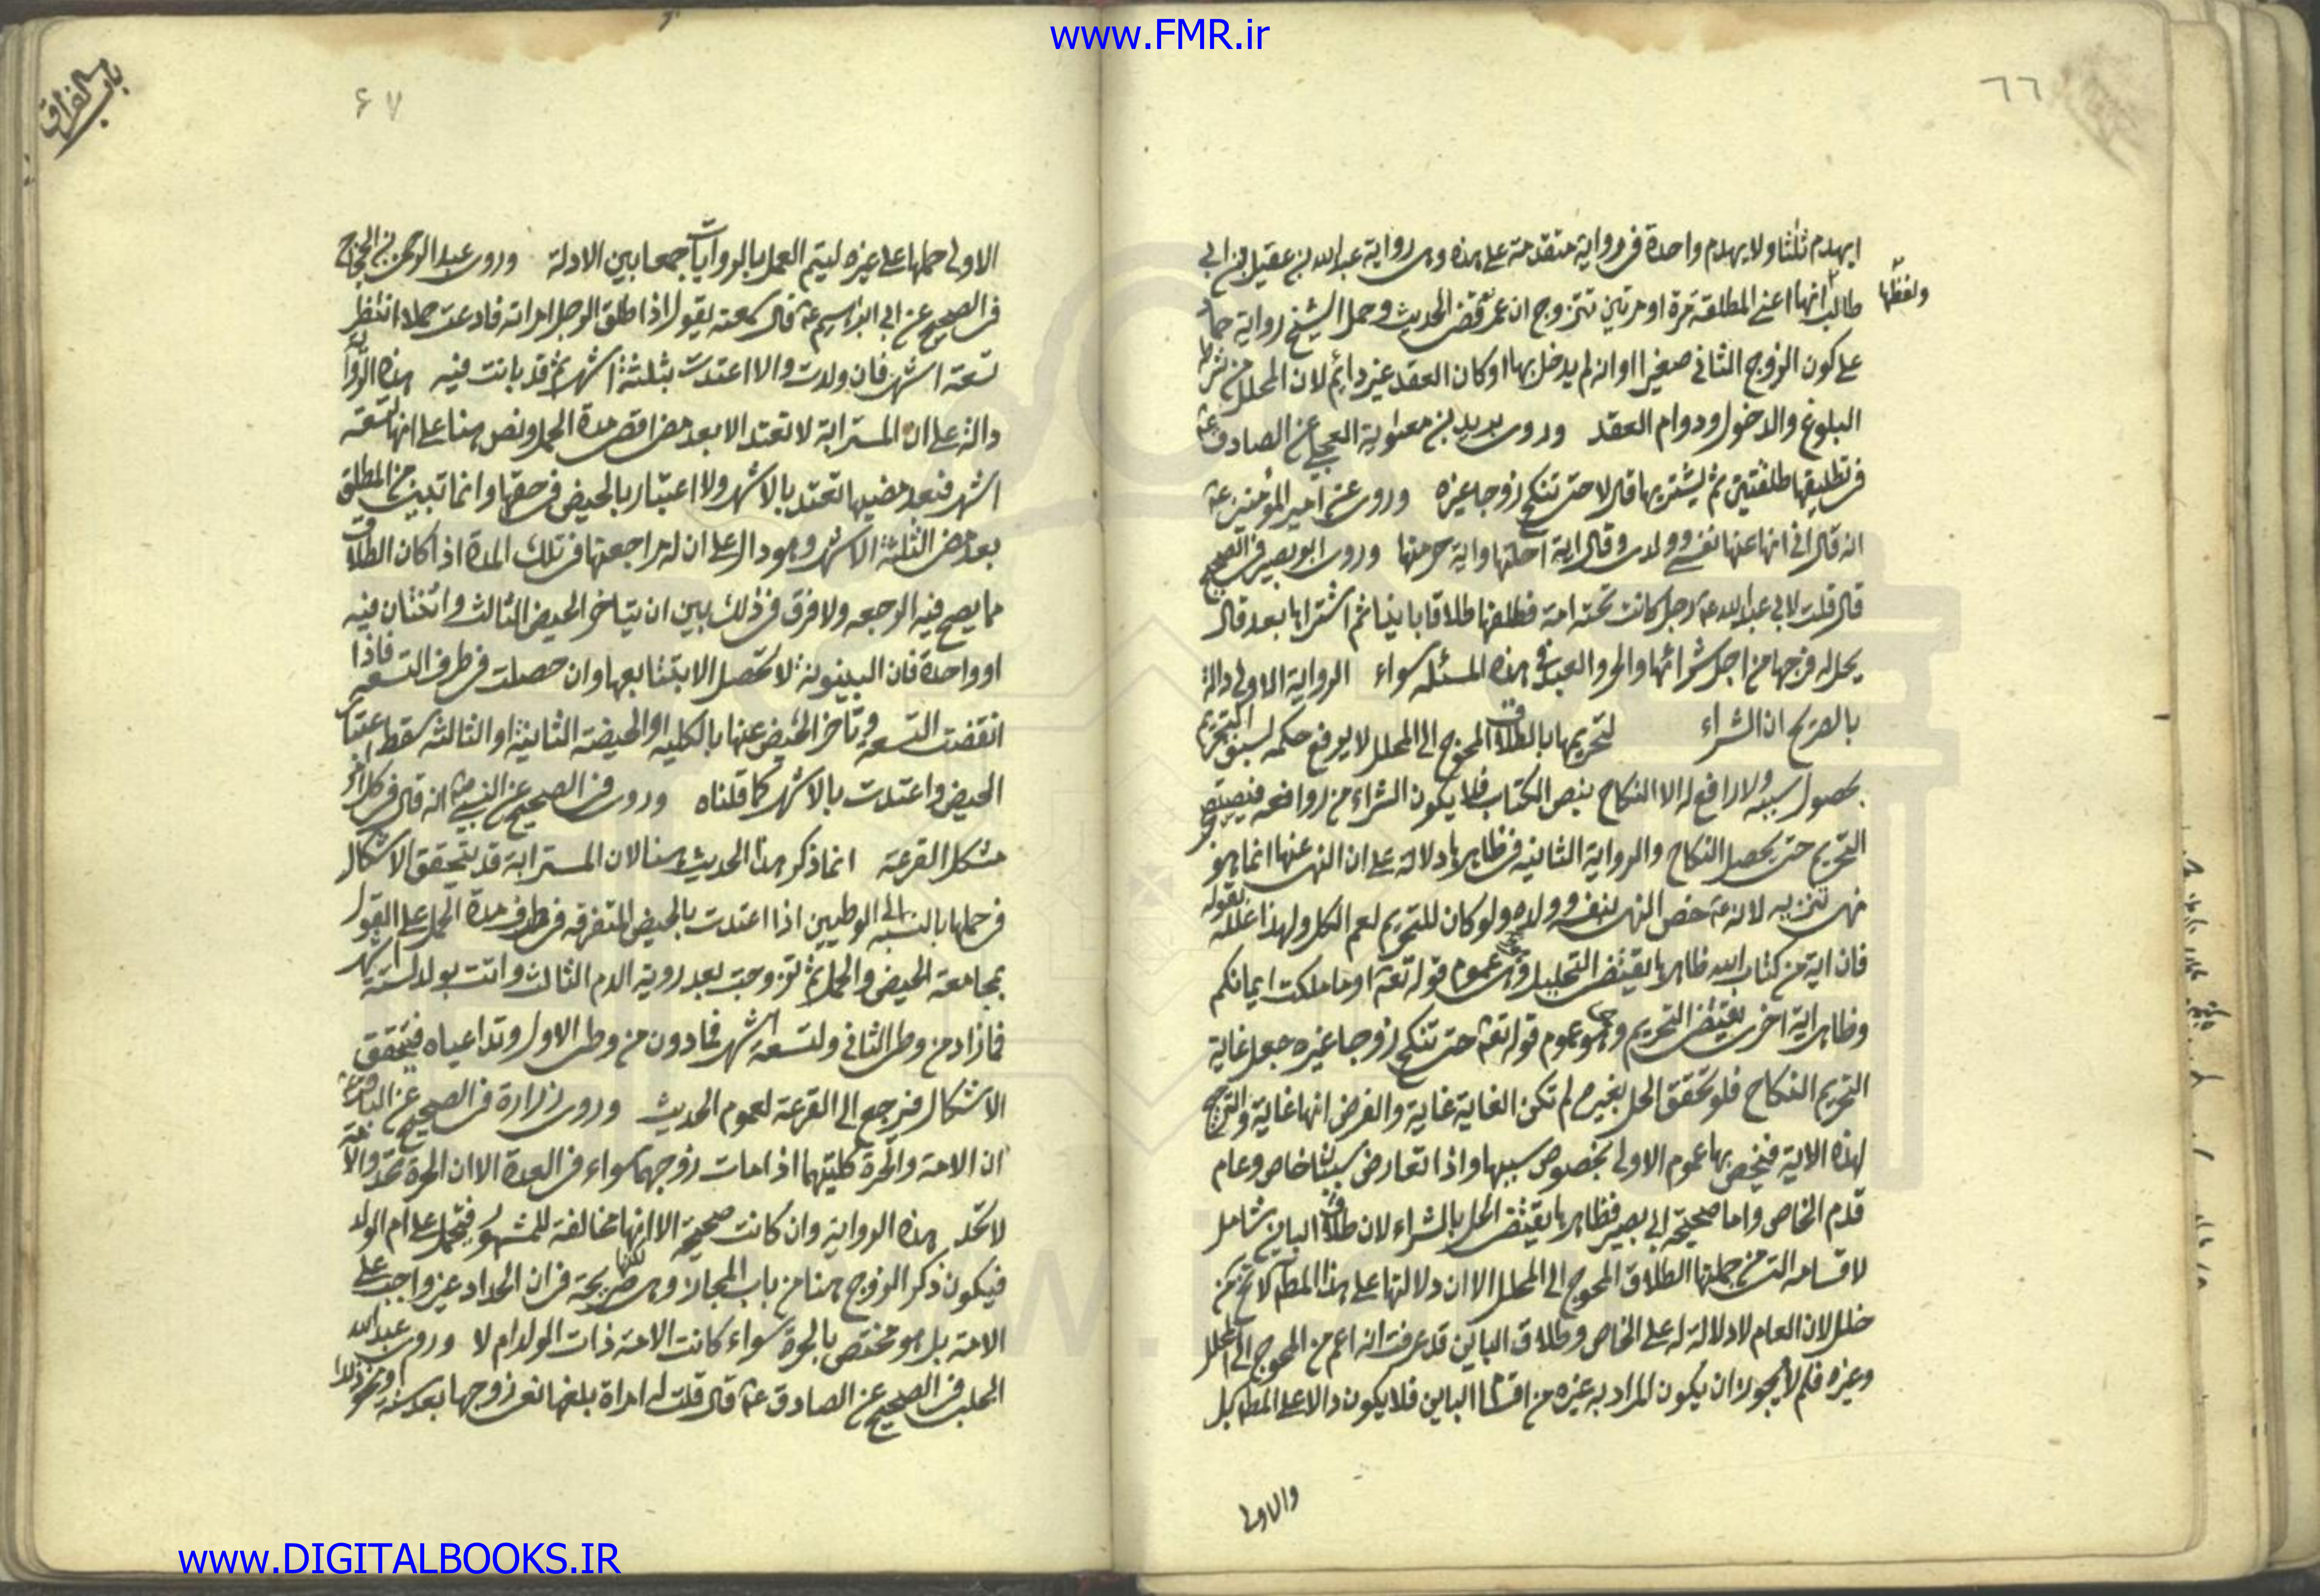 www.FMR.ir
٦٦
ايهدم ثلثا ولا يهدم واحدة فى رواية متقدمة على هذه وهى رواية عبد الله بن عقيل بن ابى
ولفظها
طالب انها اعنى المطلقة مرة او مرتين تتزوج ان عمر قضى الحديث وحمل الشيخ رواية
على كون الزوج الثانى صغيرا او انه لم يدخل بها او كان العقد غير دائم لان المحلل من شرطه
البلوغ والدخول ودوام العقد وروى بريد بن معوية العجلى عن الصادق ع
فى تطليقها طلقتين ثم يشتريها قال لا حتى تنكح زوجا غيره وروى عن امير المؤمنين ع
انه قال انى انها عنها نفسى وولدى وقال اية احلتها واية حرمتها وروى ابو بصير فى الصحيح
قال قلت لابى عبد الله ع رجل كانت تحته امة فطلقها طلاقا باينا ثم اشتراها بعد قال
يحل له فرجها من اجل شرائها والحر والعبد فى هذه المسئلة سواء الرواية الاولى دالة
بالصريح ان الشراء لتحريمها بالطلاق المحوج الى المحلل لا يرفع حكمه لسبق التحريم
بحصول سببه ولا رافع له الا النكاح بنص الكتاب فلا يكون الشراء من روافعه
التحريم حتى يحصل النكاح والرواية الثانية فى ظاهرها دلالة على ان النهى عنها انما هو
نهى تنزيه لانه ع خص النهى بنفسه وولده ولو كان للتحريم لعم الكل ولهذا علله بقوله
فان اية من كتاب الله ظاهرها يقتضى التحليل وهى عموم قوله تعه او ما ملكت ايمانكم
وظاهر اية اخرى يقتضى التحريم وهو عموم قوله تعه حتى تنكح زوجا غيره جعل غاية
التحريم النكاح فلو تحقق الحل بغيره لم تكن الغاية غاية والفرض انها غاية والترجيح
لهذه الاية فيخص بها عموم الاولى بخصوص سببها واذا تعارض سببان خاص وعام
قدم الخاص واما صحيحة ابى بصير فظاهرها يقتضى الحل بالشراء لان طلاق الباين شامل
لاقسامه التى من جملتها الطلاق المحوج الى المحلل الا ان دلالتها على هذا المط لا تخ من
خلل لان العام لا دلالة له على الخاص وطلاق الباين قد عرفت انه اعم من المحوج الى المحلل
وغيره فلم لا يجوز ان يكون المراد به غيره من اقسام الباين فلا يكون دالا على المط بل
والاولى
باب الفراق
۶۷
الاولى حملها على غيره ليتم العمل بالروايات جمعا بين الادلة وروى عبد الرحمن بن الحجاج
فى الصحيح عن ابى ابراهيم ع قال سمعته يقول اذا طلق الرجل امراته فادعت حملا انتظر
تسعة اشهر فان ولدت والا اعتدت بثلثة اشهر ثم قد بانت فيه هذه الرواية
دالة على ان المسترابة لا تعتد الا بعد مضى اقصى مدة الحمل ونص هنا على انها تسعة
اشهر فبعد مضيها تعتد بالاشهر ولا اعتبار بالحيض فى حقها وانما تبين من المطلق
بعد مضى الثلثة الاشهر وهو دال على ان له مراجعتها فى تلك المدة اذا كان الطلاق
مما يصح فيه الرجعه ولا فرق فى ذلك بين ان يتاخر الحيض الثالث واثنتان فيه
او واحدة فان البينونة لا تحصل الا بتتابعها وان حصلت فى طرف التسعه فاذا
انقضت التسعه وتاخر الحيض عنها بالكليه او الحيضة الثانية او الثالثه سقط اعتبار
الحيض واعتدت بالاشهر كما قلناه وروى فى الصحيح عن النبى ص انه قال فى كل امر
مشكل القرعة انما ذكر هذا الحديث هنا لان المسترابة قد يتحقق الاشكال
فى حملها بالنسبه الى الوطيين اذا اعتدت بالحيض المتفرقه فى طرف مدة الحمل على القول
بمجامعة الحيض والحمل ثم تزوجت بعد روية الدم الثالث واتت بولد لستة اشهر
فما زاد من وطى الثانى ولتسعة اشهر فما دون من وطى الاول وتداعياه فيتحقق
الاشكال فيرجع الى القرعة لعموم الحديث وروى زرارة فى الصحيح عن الباقر ع
ان الامة والحرة كلتيهما اذا مات زوجهما سواء فى العدة الا ان الحرة تحد والامة
لا تحد هذه الرواية وان كانت صحيحة الا انها مخالفة للمشهور فيحمل على ام الولد
فيكون ذكر الزوج هنا من باب المجاز وهى صريحة فى ان الحداد غير واجب على
الامة بل هو مختص بالحرة سواء كانت الامة ذات الولد ام لا وروى عبد الله
الحلبى فى الصحيح عن الصادق ع قال قلت له امراة بلغها نعى زوجها بعد سنة
www.DIGITALBOOKS.IR